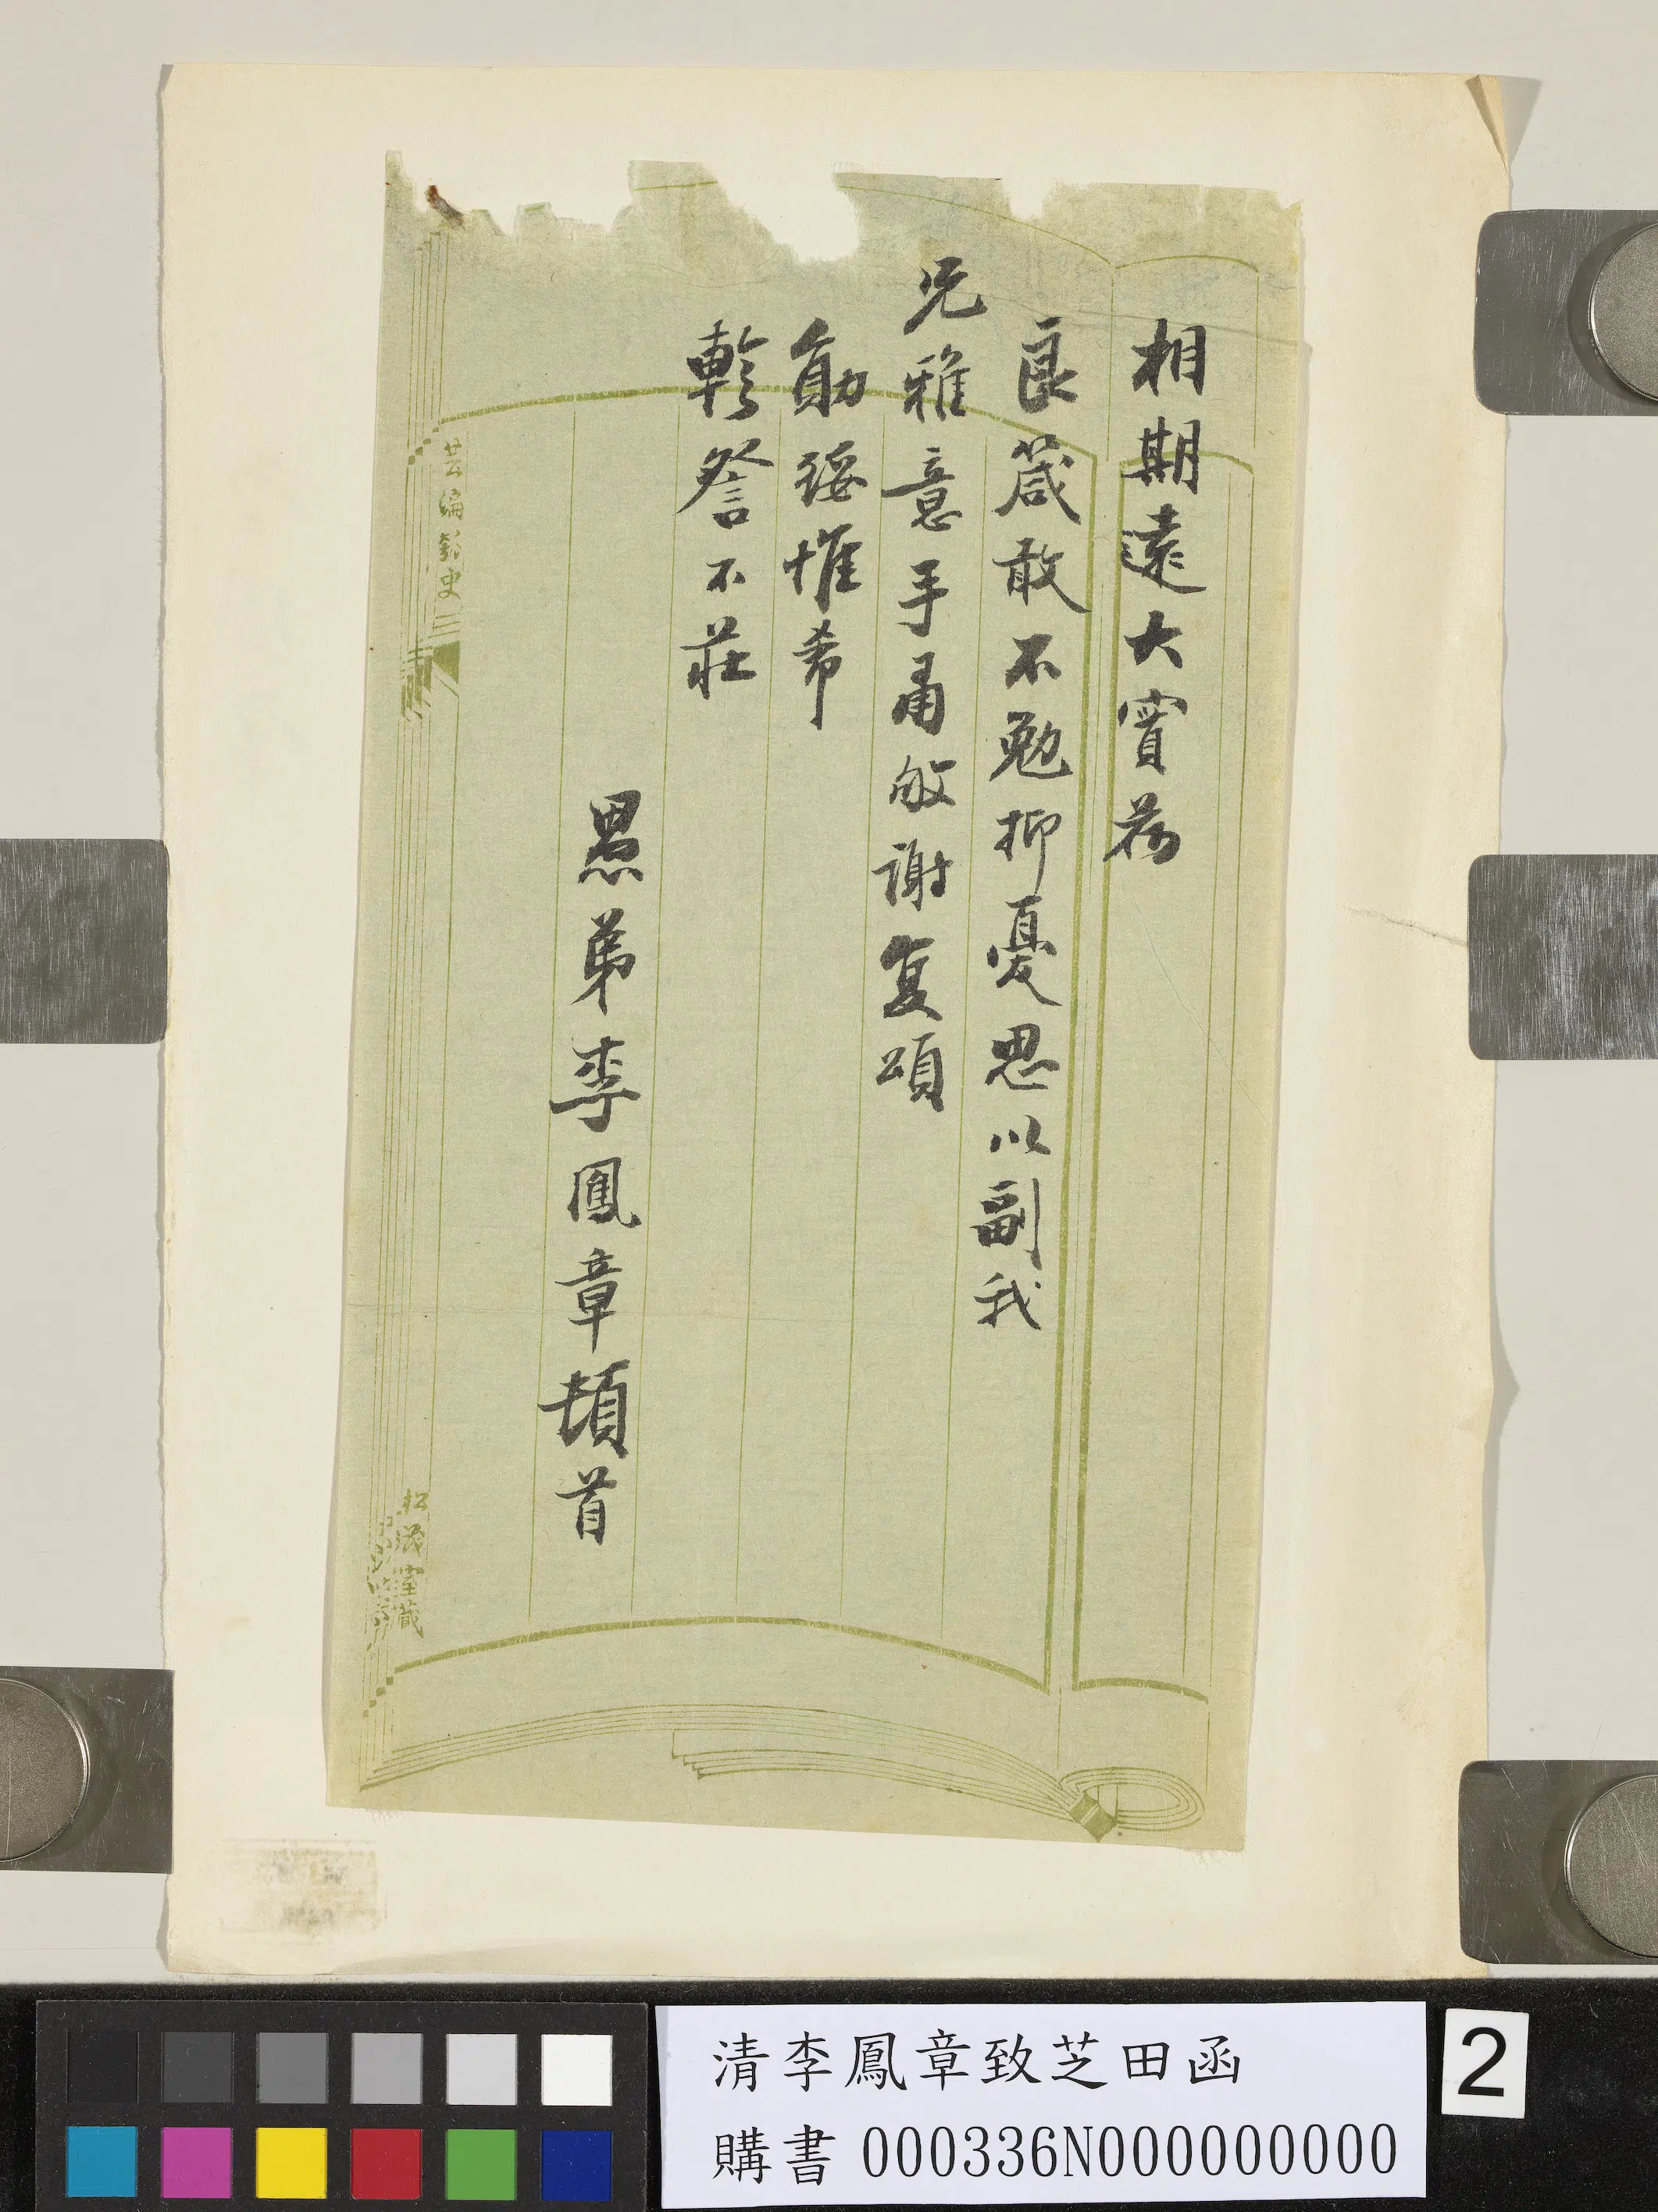 相期遠大實荷
良箴敢不勉抑憂思以副我
兄雅意手肅敬謝复頌
勛綏惟希
軫詧不莊
愚弟李鳳章頓首
芸編
史
松
室藏
清李鳳章致芝田函
購書000336N000000000
2